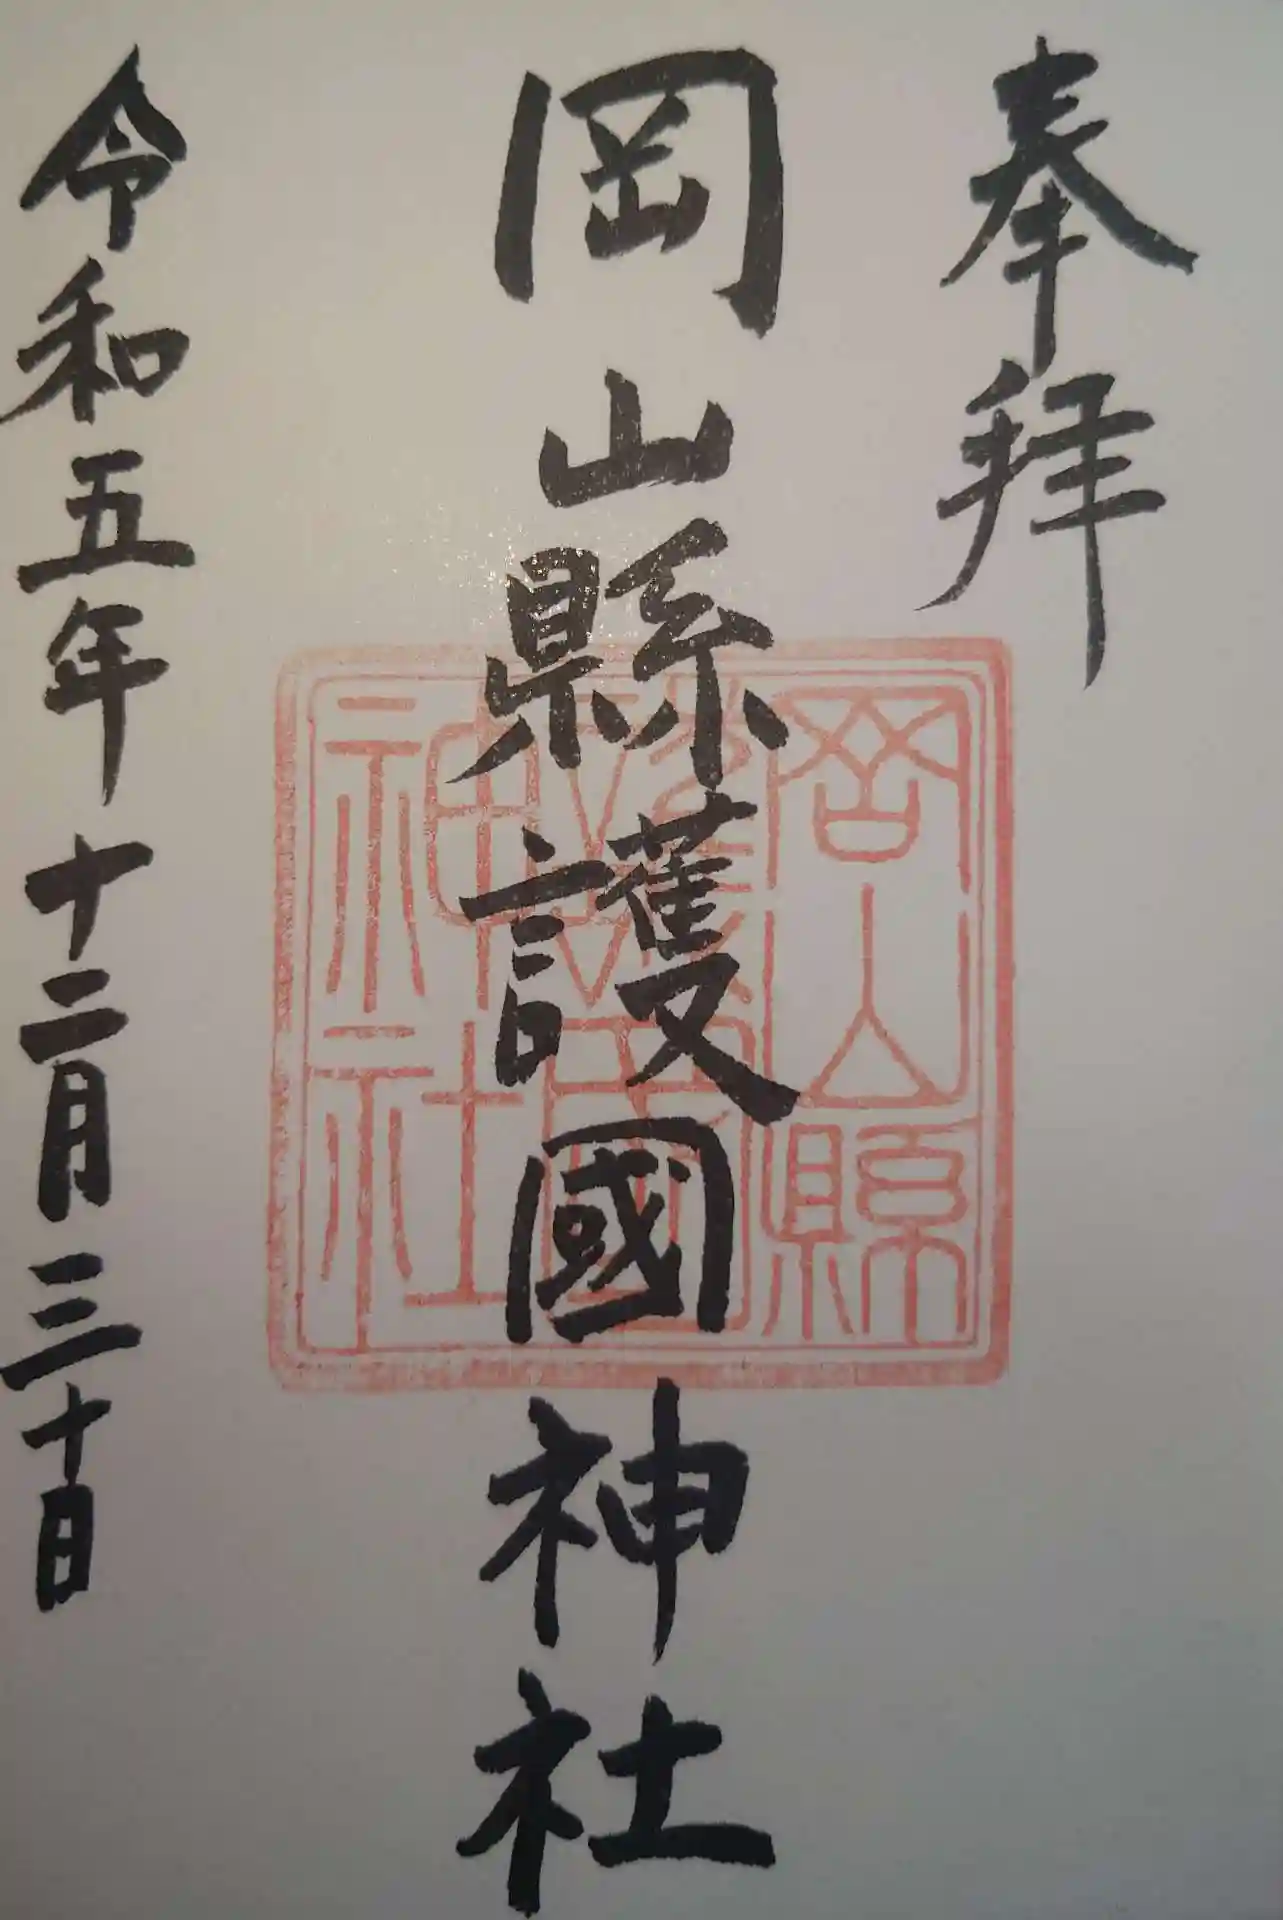 奉拝
岡山縣護國神社
岡山縣
護國
神社
令和五年十二月三十日